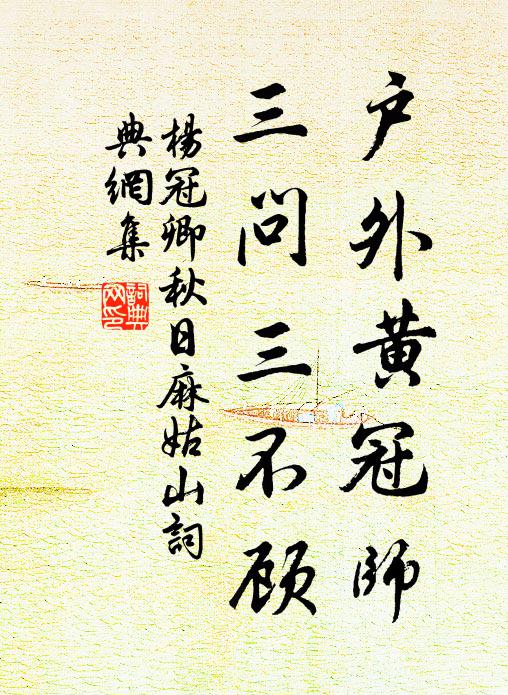 户外黄冠师
三问三不顾
楊冠卿秋日麻姑山詞
典網集
詞典网印